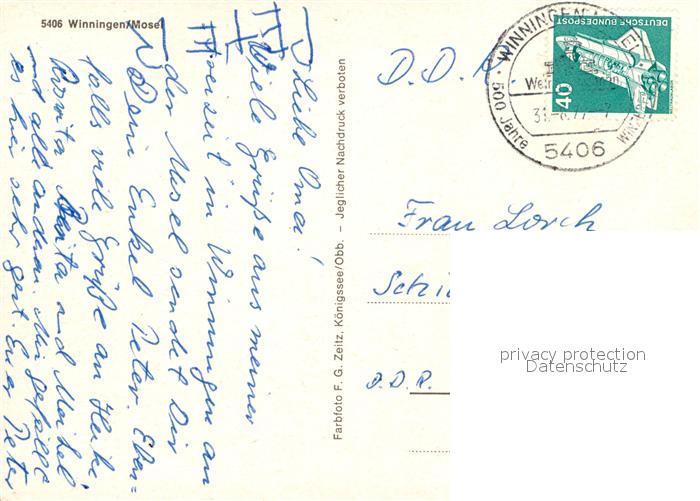 5406 Winningen/Mosel
Liebe Oma!
Viele Grüße aus meiner
Kurzeit in Winningen an
der Mosel sendet Dir
Dein Enkel Peter. Eben=
falls viele Grüße an Heike,
Rosita und Maikel
und alle andren. Mir gefällt
es hir sehr gut. Euer Peter
Farbfoto F. G. Zeitz, Königssee/Obb. – Jeglicher Nachdruck verboten
D. D. R.
WINNINGEN
500 Jahre
5406
DEUTSCHE BUNDESPOST
40
Frau Lorch
D.D.R.
privacy protection
Datenschutz